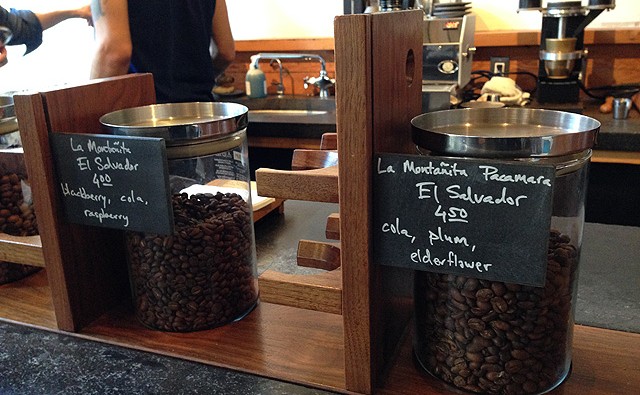 La Montañita
El Salvador
400
blackberry, cola,
raspberry
La Montañita Pacamara
El Salvador
450
cola, plum,
elderflower